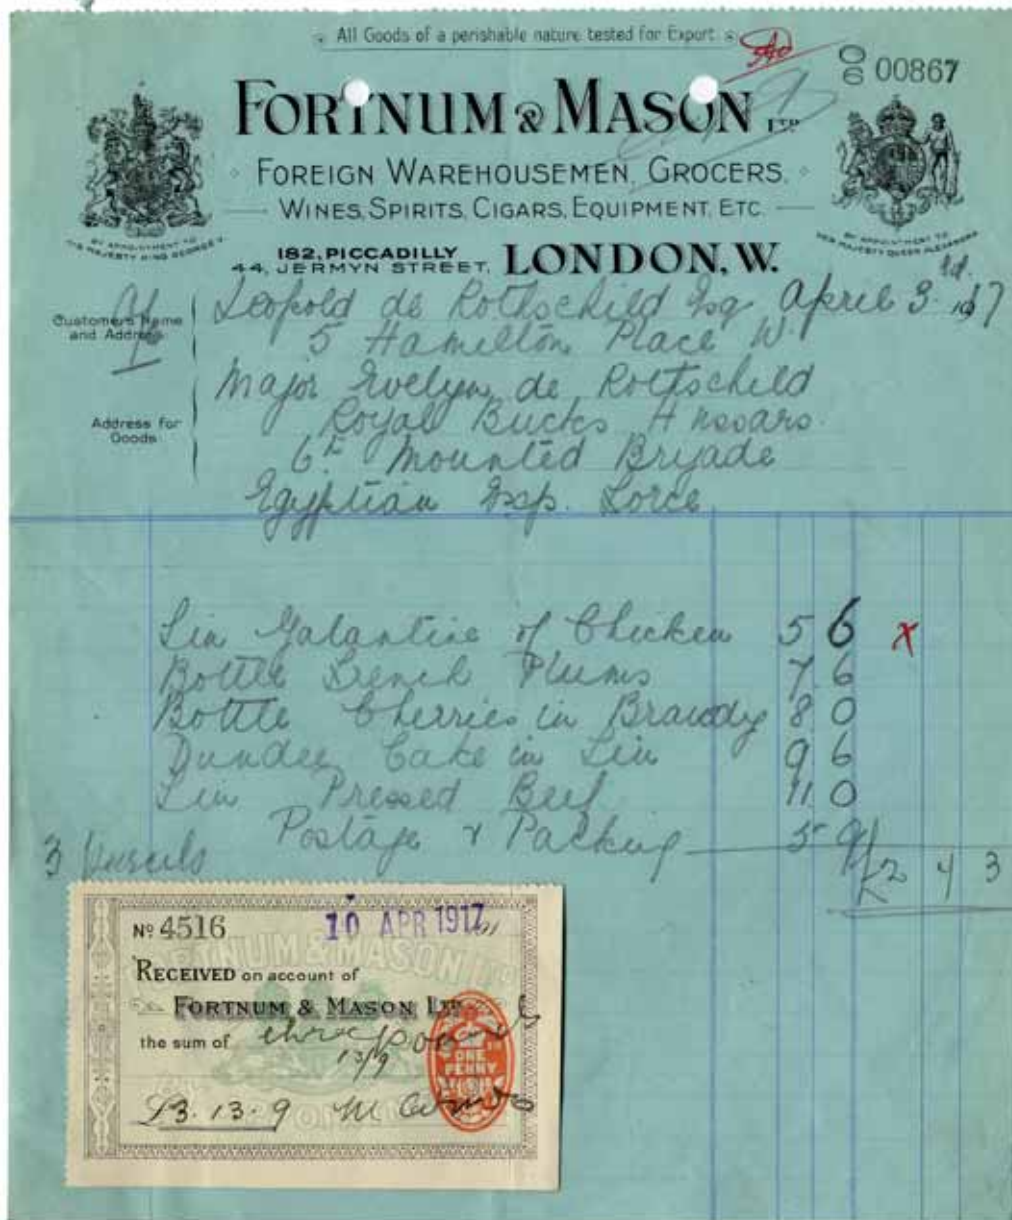 All Goods of a perishable nature tested for Export
O/6 00867
FORTNUM & MASON LTD
FOREIGN WAREHOUSEMEN, GROCERS,
WINES, SPIRITS, CIGARS, EQUIPMENT, ETC
BY APPOINTMENT TO HIS MAJESTY KING GEORGE V.
BY APPOINTMENT TO HER MAJESTY QUEEN ALEXANDRA
182, PICCADILLY
44, JERMYN STREET, LONDON, W.
Customers Name and Address
Leopold de Rothschild Esq April 3 1917
5 Hamilton Place W
Major Evelyn de Rothschild
Address for Goods
Royal Bucks Hussars
6th Mounted Brigade
Egyptian Exp. Force
Tin Galantine of Chicken 5 6 x
Bottle French Plums 7 6
Bottle Cherries in Brandy 8 0
Dundee Cake in Tin 9 6
Tin Pressed Beef 11 0
Postage & Packing 5 9
3 Parcels
£2 4 3
No 4516 10 APR 1917
RECEIVED on account of
FORTNUM & MASON LTD
the sum of three pounds
13/9
ONE PENNY
£3.13.9